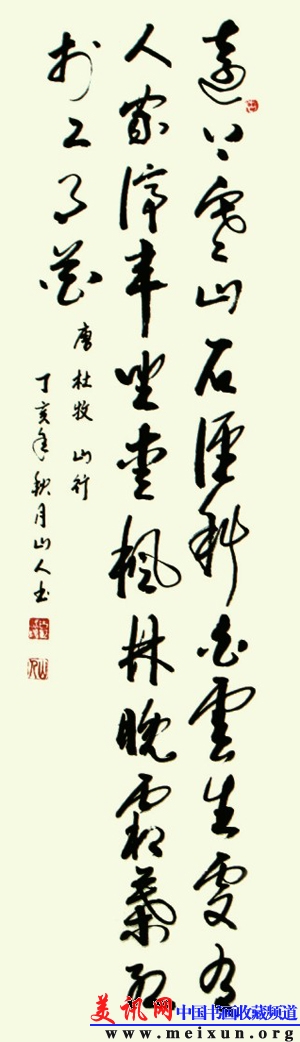 遠上寒山石徑斜白雲生處有
人家停車坐愛楓林晚霜葉紅
於二月花
唐杜牧山行
丁亥年秋月山人書
美讯网 中国书画收藏频道
www.meixun.org